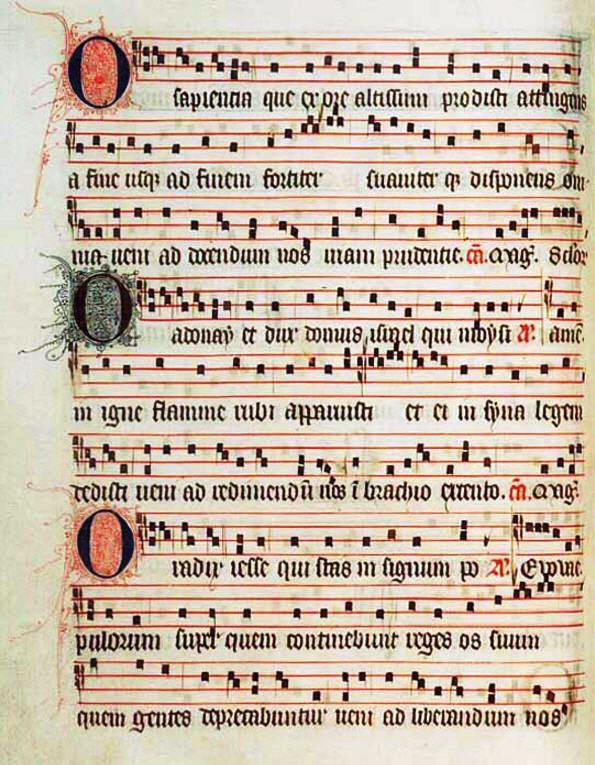 O sapientia que ex ore altissimi prodisti attingens
a fine usq; ad finem fortiter suauiter q; disponens om-
nia ueni ad docendum nos uiam prudentie. cā. Mag̃.
O adonay et dux domus israel qui moysi amē.
in igne flamme rubi apparuisti et ei in syna legem
dedisti ueni ad redimendū nos ī brachio extento. cā. Mag̃.
O radix iesse qui stas in signum po
pulorum super quem continebunt reges os suum
quem gentes deprecabuntur ueni ad liberandum nos